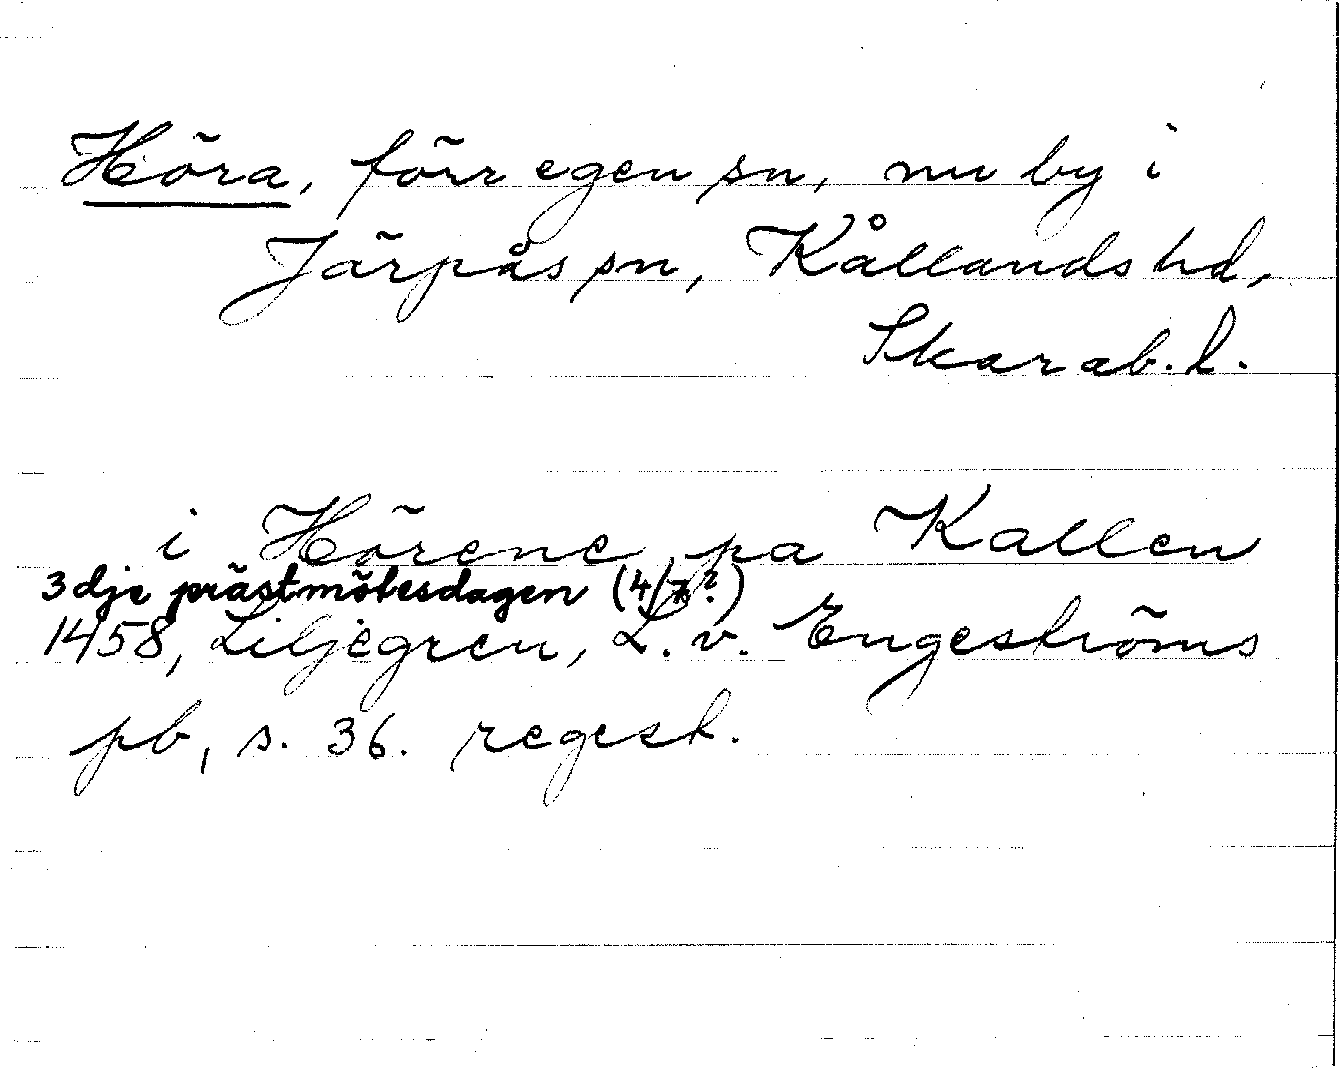 Höra, förr egen sn, nu by i
Järpås sn, Kållands hd,
Skarab. l.
i Hörene pa Kallen
3dje prästmötesdagen (4/7?)
1458, Liljegren, L. v. Engeströms
pb, s. 36. regest.